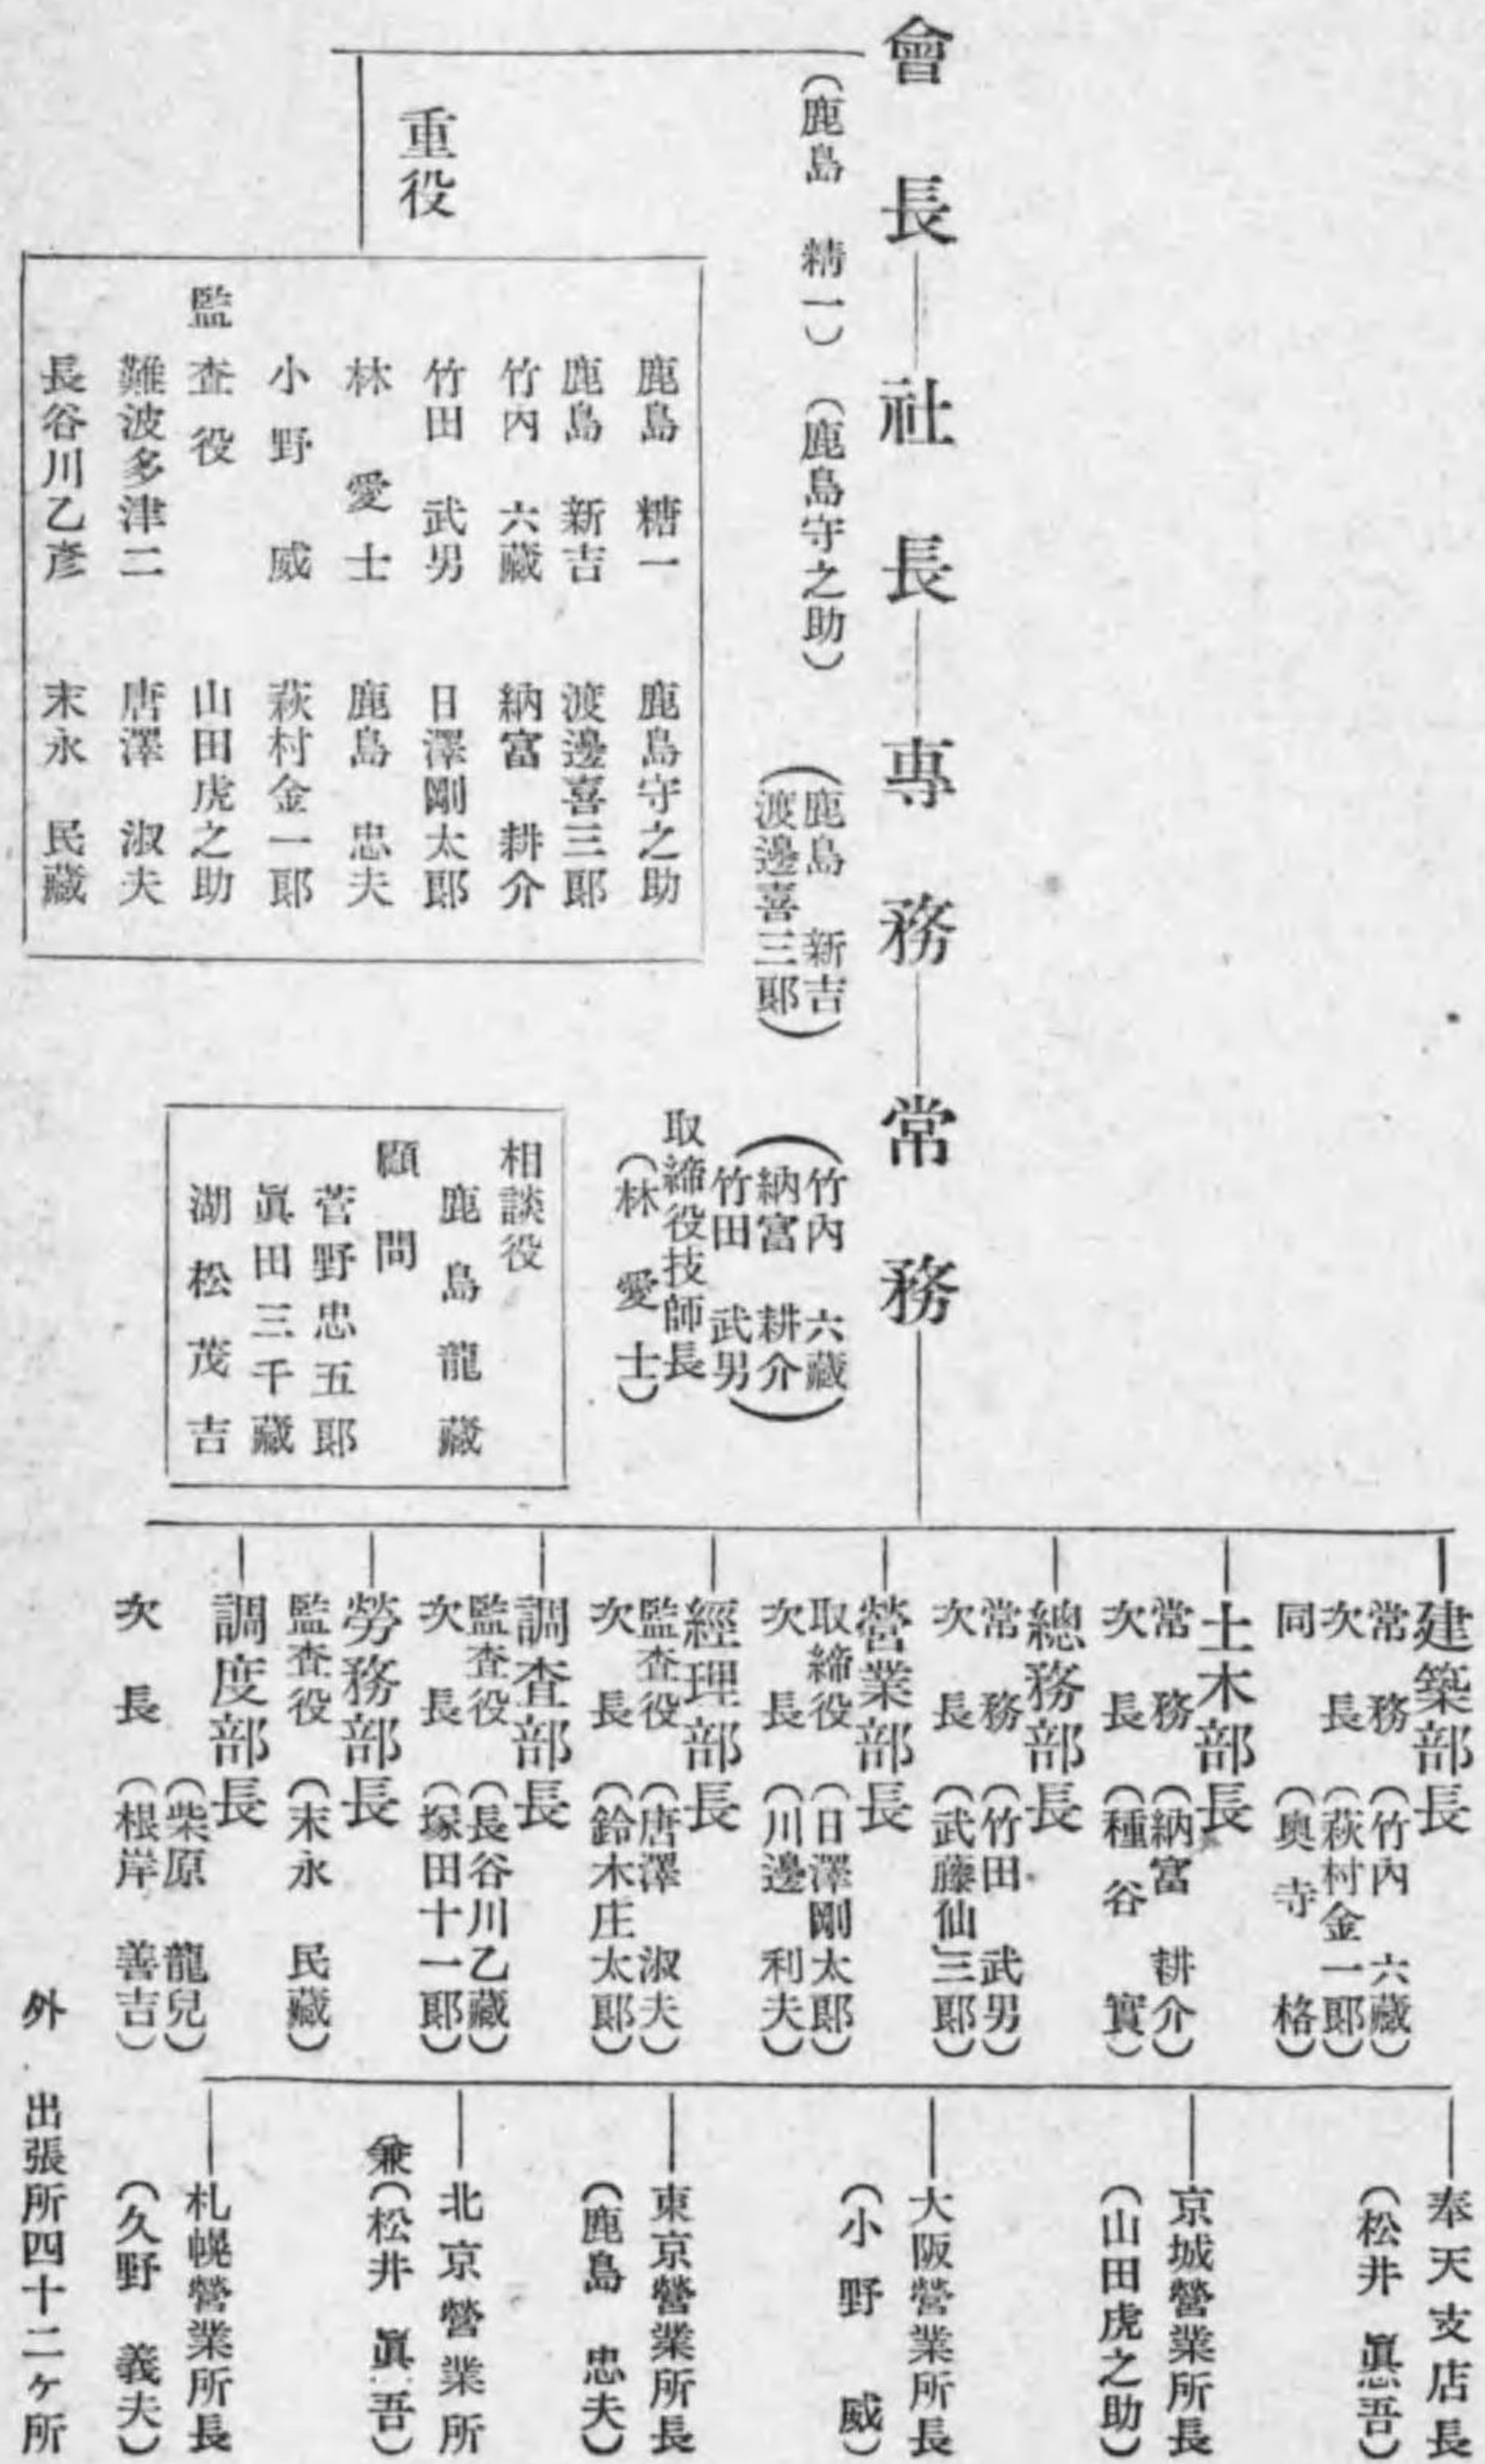 會長―社長―專務―常務
（鹿島　精一）
（鹿島守之助）
（鹿島　新吉
渡邊喜三郞）
（竹內　六藏
納富　耕介
竹田　武男）
取締役技師長
（林　愛士）
重役
鹿島　糖一　鹿島守之助
鹿島　新吉　渡邊喜三郞
竹內　六藏　納富　耕介
竹田　武男　日澤剛太郞
林　愛士　鹿島　忠夫
小野　威　萩村金一郞
監查役　山田虎之助
難波多津二　唐澤　淑夫
長谷川乙彥　末永　民藏
相談役
鹿島龍藏
顧問
菅野忠五郞
眞田三千藏
湖松茂吉
建築部長
常務（竹內　六藏）
次長（萩村金一郞）
同（奧寺　格）
土木部長
常務（納富　耕介）
次長（種谷　實）
總務部長
常務（竹田　武男）
次長（武藤仙三郞）
營業部長
取締役（日澤剛太郞）
次長（川邊　利夫）
經理部長
監查役（唐澤　淑夫）
次長（鈴木庄太郞）
調查部長
監查役（長谷川乙藏）
次長（塚田十一郞）
勞務部長
監查役（末永　民藏）
調度部長
（柴原　龍兒）
次長（根岸　善吉）
奉天支店長
（松井　眞吾）
京城營業所長
（山田虎之助）
大阪營業所長
（小野　威）
東京營業所長
（鹿島　忠夫）
北京營業所
兼（松井　眞吾）
札幌營業所長
（久野　義夫）
外　出張所四十二ヶ所